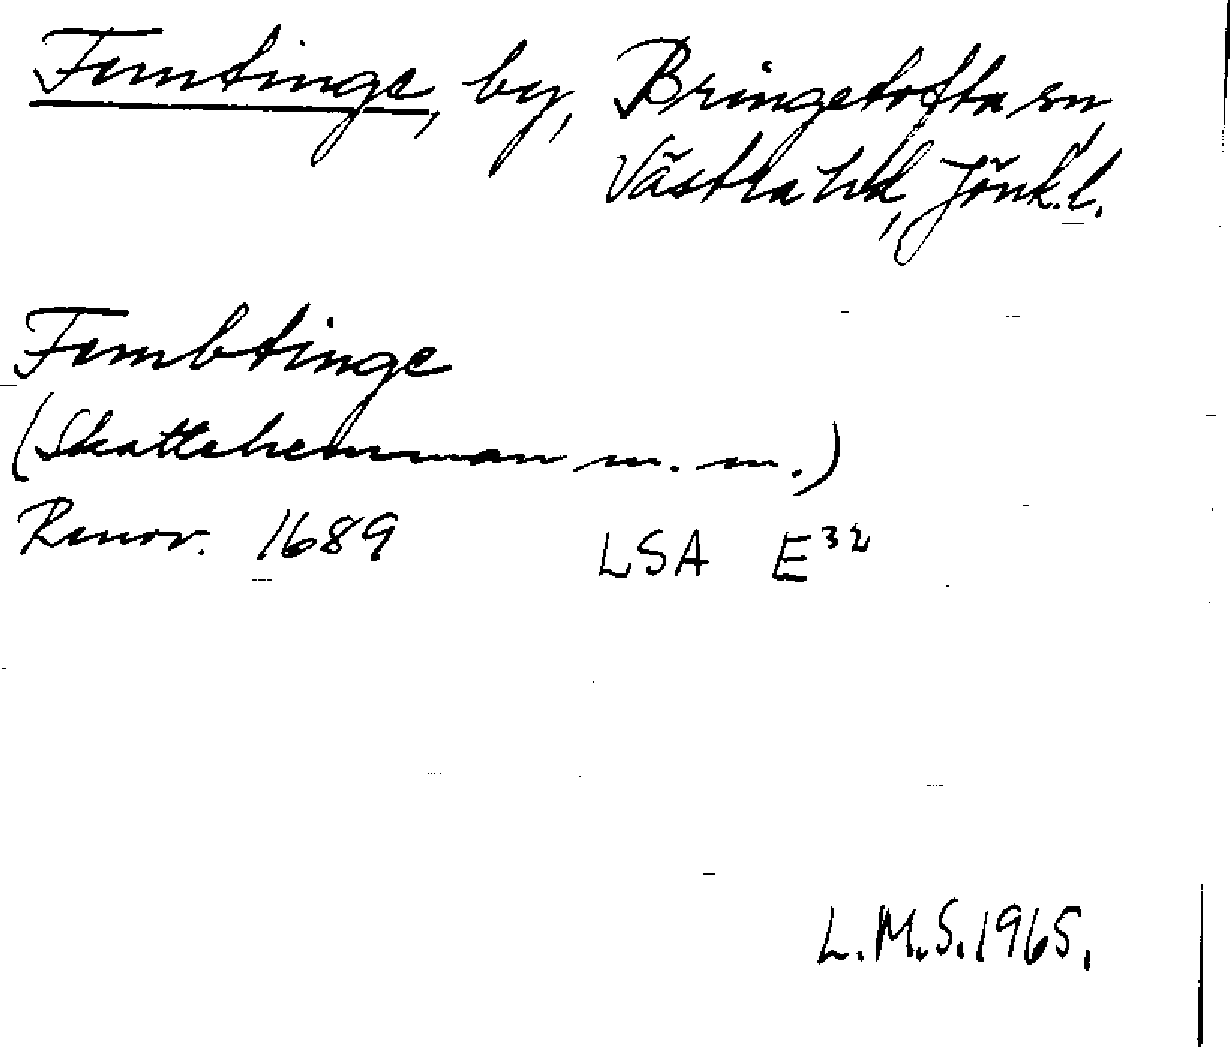 Femtinge, by, Bringetofta sn,
Västra hd, Jönk.l.
Fembtinge
(Skattehemman m. m.)
Renov. 1689 LSA E³²
L.M.S. 1965.